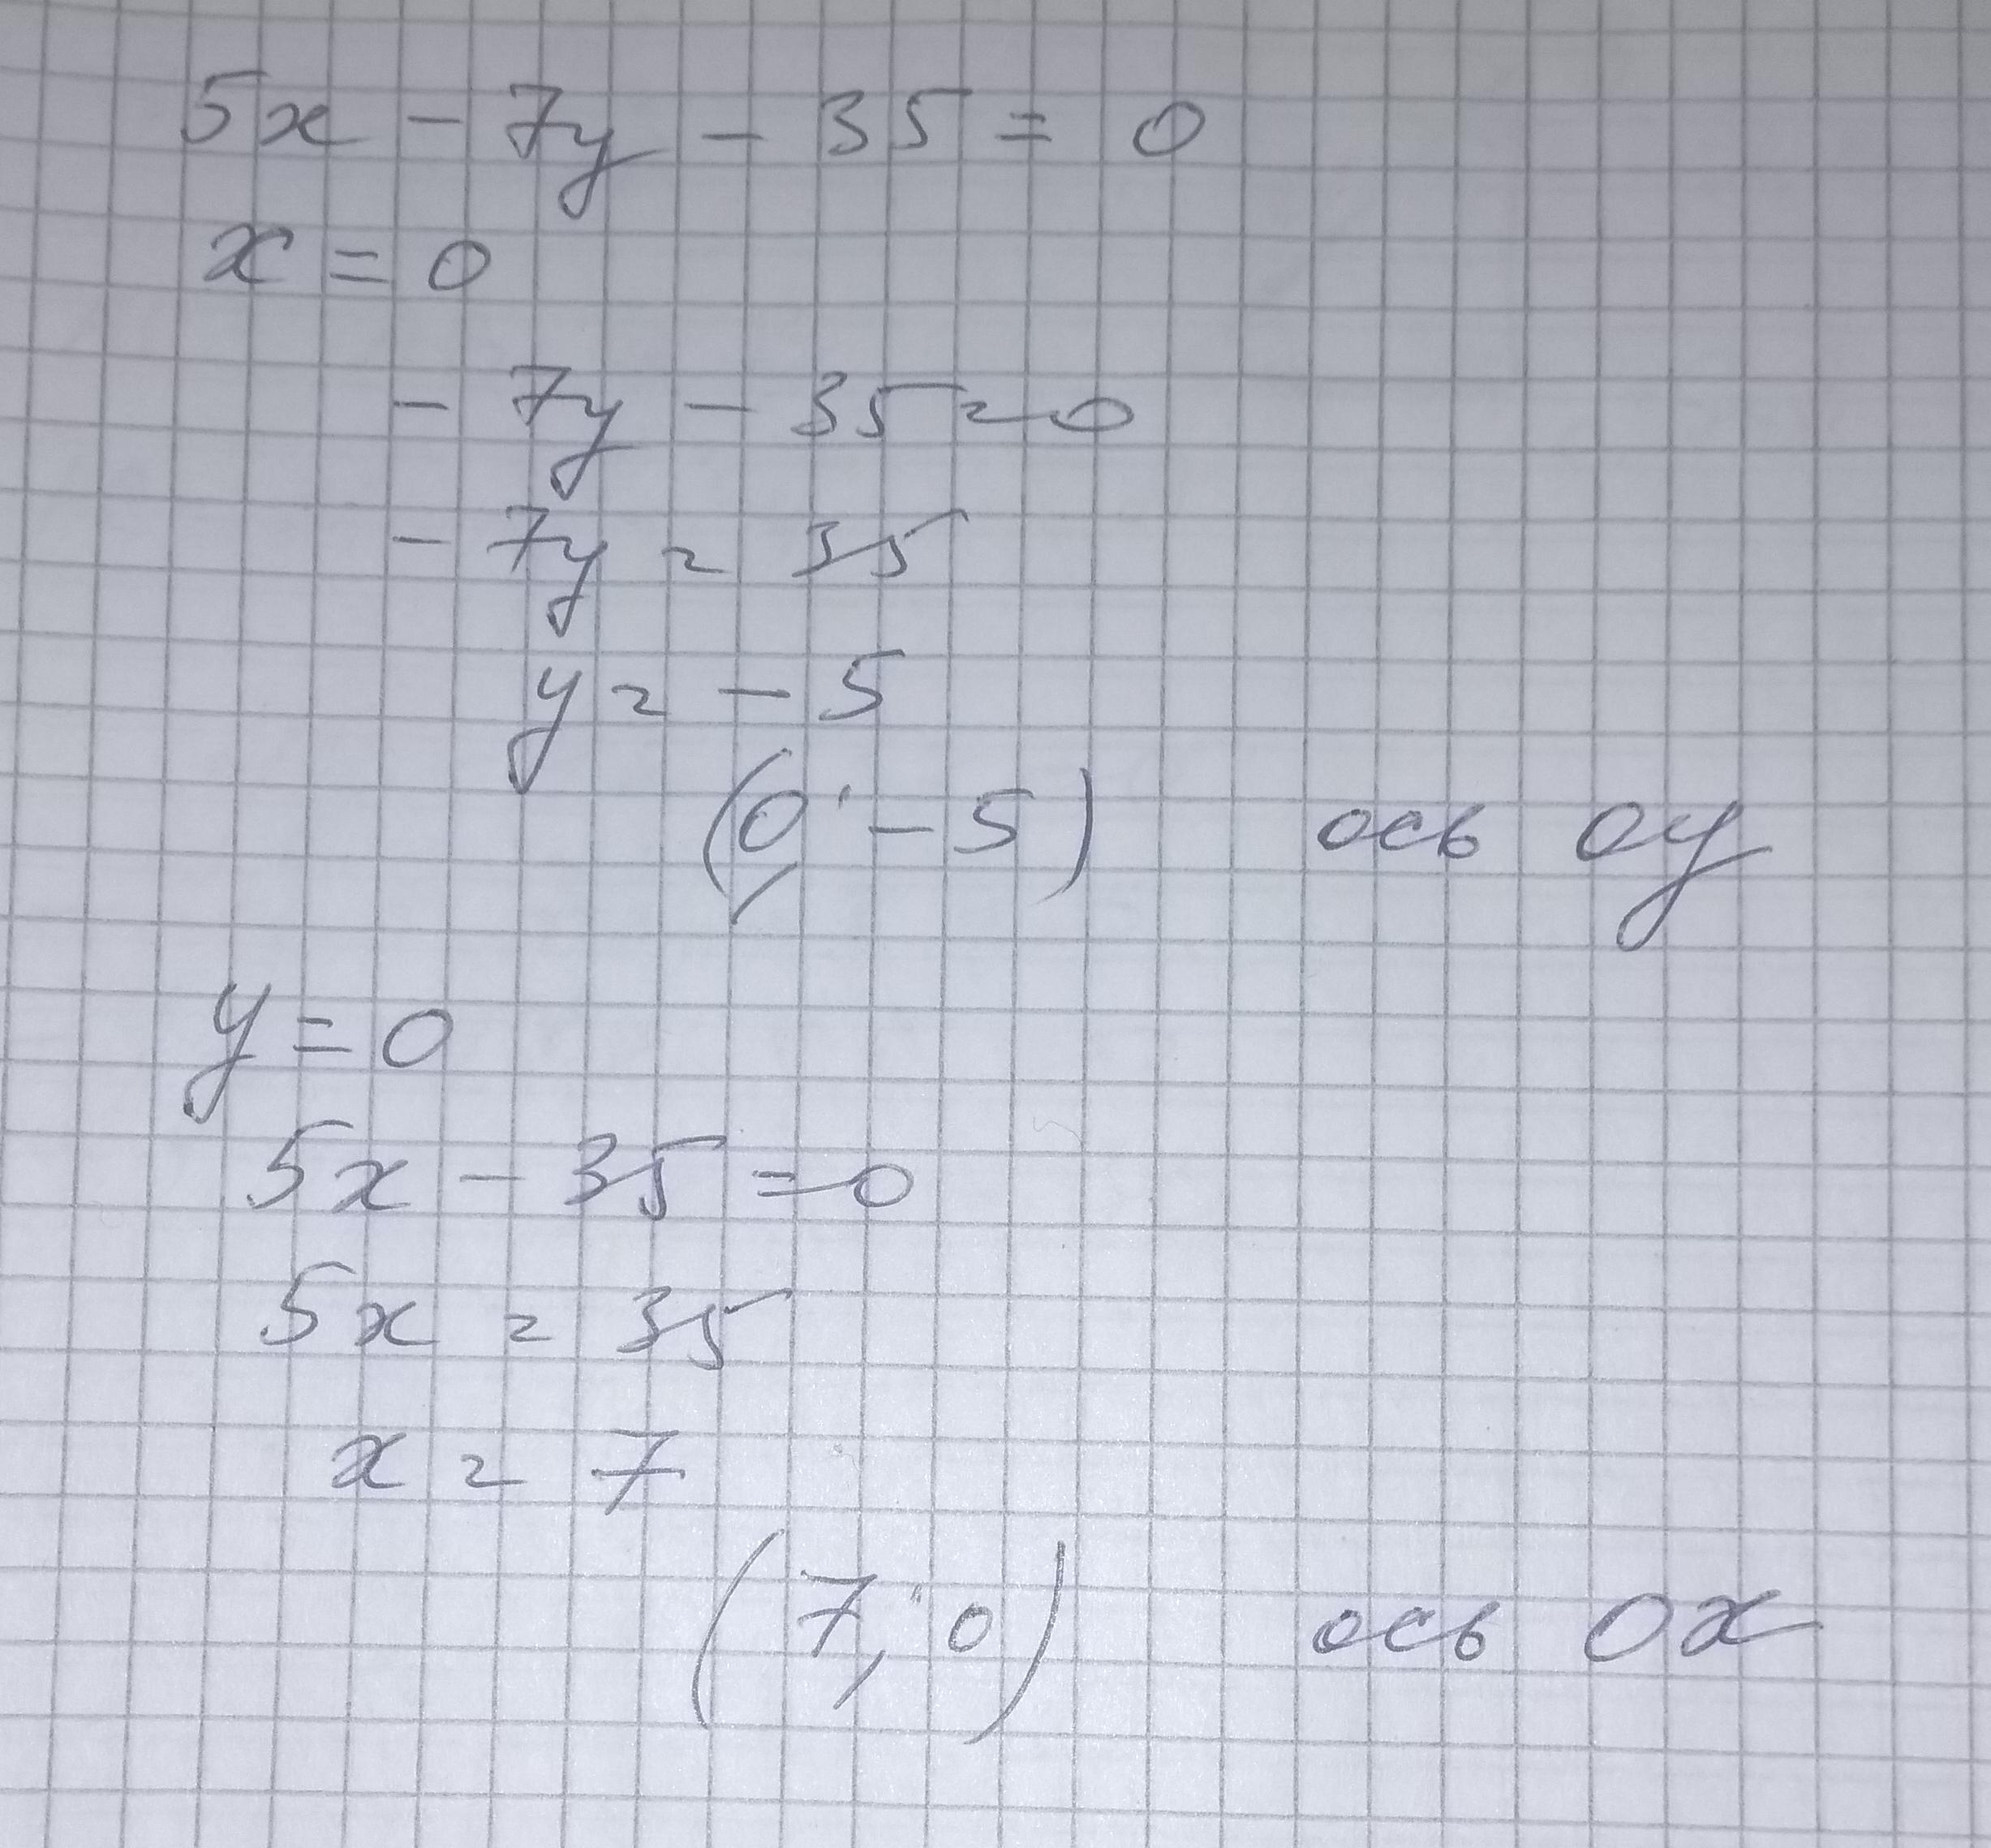 5x - 7y - 35 = 0
x = 0
- 7y - 35 = 0
- 7y = 35
y = - 5
(0; - 5) ось оу
y = 0
5x - 35 = 0
5x = 35
x = 7
(7; 0) ось Ох